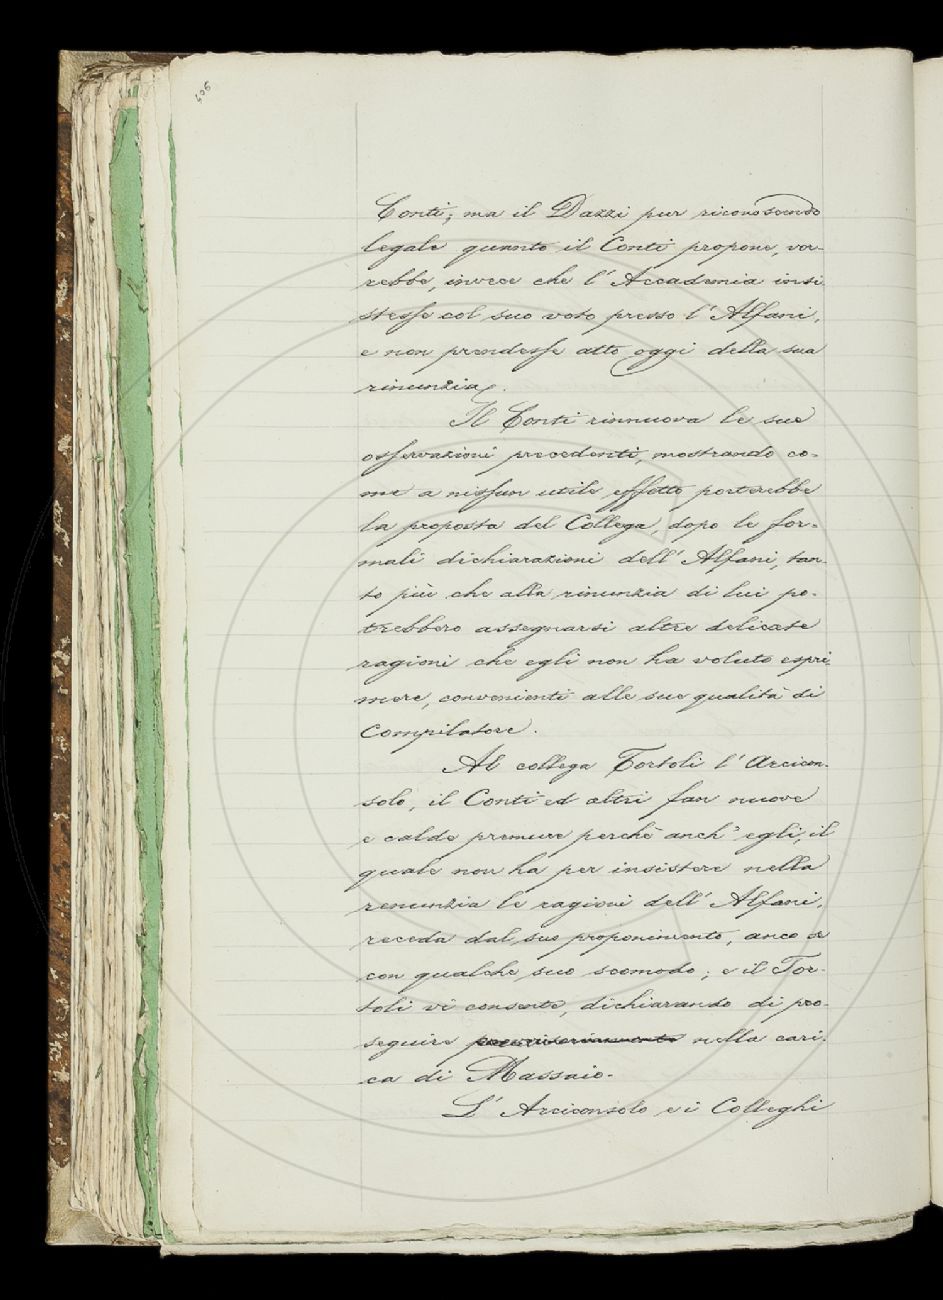 406
Conti; ma il Dazzi pur riconoscendo
legale quanto il Conti propone, vor-
rebbe, invece che l'Accademia insi-
stesse col suo voto presso l'Alfani,
e non prendesse atto oggi della sua
rinunzia.
Il Conti rinnuova le sue
osservazioni precedenti, mostrando co-
me a nissun utile effetto porterebbe
la proposta del Collega, dopo le for-
mali dichiarazioni dell'Alfani, tan-
to più che alla rinunzia di lui po-
trebbero assegnarsi altre delicate
ragioni che egli non ha voluto espri
mere, convenienti alle sue qualità di
Compilatore.
Al collega Tortoli l'Arcicon-
solo, il Conti ed altri fan nuove
e calde premure perchè anch'egli, il
quale non ha per insistere nella
renunzia le ragioni dell'Alfani,
receda dal suo proponimento, anco se
con qualche suo scomodo; e il Tor-
toli vi consente, dichiarando di pro-
seguire nella cari-
ca di Massaio.
L'Arciconsolo e i Colleghi